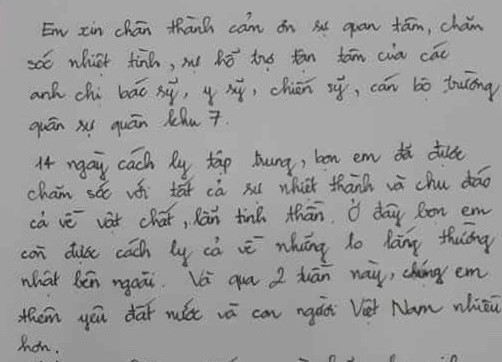 Em xin chân thành cảm ơn sự quan tâm, chăm
sóc nhiệt tình, sự hỗ trợ tận tâm của các
anh chị bác sỹ, y sỹ, chiến sỹ, cán bộ trường
quân sự quân khu 7.
14 ngày cách ly tập trung, bọn em đã được
chăm sóc với tất cả sự nhiệt thành và chu đáo
cả về vật chất, lẫn tinh thần. Ở đây bọn em
còn được cách ly cả về những lo lắng thường
nhật bên ngoài. Và qua 2 tuần này, chúng em
thêm yêu đất nước và con người Việt Nam nhiều
hơn.